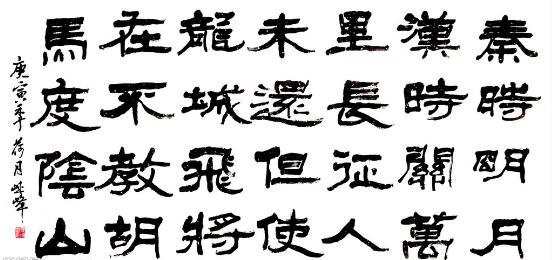 秦時明月
漢時關萬
里長征人
未還但使
龍城飛將
在不教胡
馬度陰山
庚寅年荷月